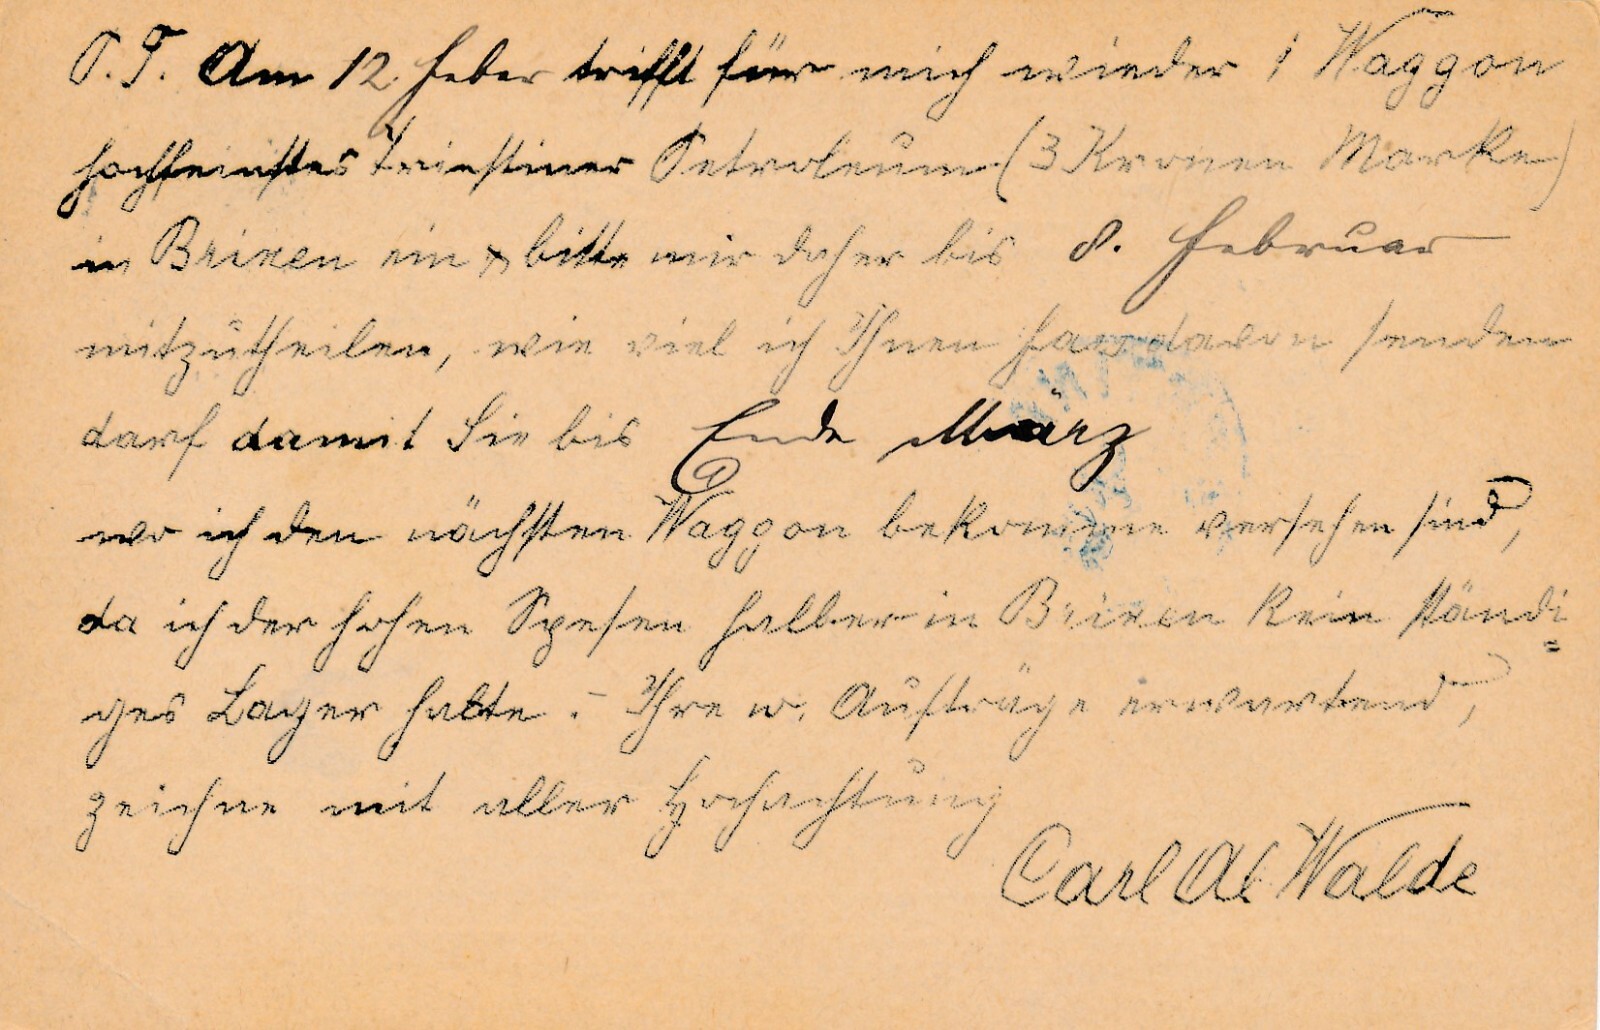 P. T. Am 12. Feber trifft für mich wieder 1 Waggon
hochfeinstes Triestiner Petroleum (3 Kronen Marke)
in Brixen ein & bitte mir daher bis 8. Februar
mitzutheilen, wie viel ich Ihnen hievon senden
darf damit Sie bis Ende März
wo ich den nächsten Waggon bekomme versehen sind,
da ich der hohen Spesen halber in Brixen kein ständi=
ges Lager halte. – Ihre w. Aufträge erwartend,
zeichne mit aller Hochachtung
Carl Al. Walde